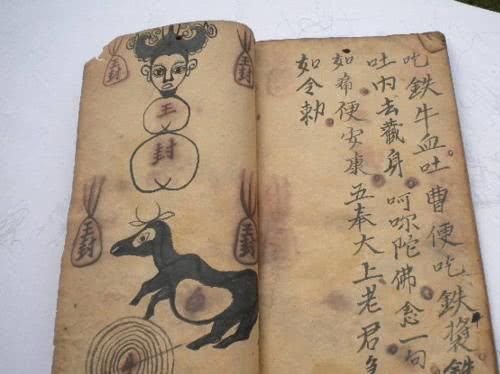 吃鉄牛血吐曹便吃鉄袋鉄
吐内去藏身呵陀佛念一句
如希便安康五奉大上老君急
如令勅
王封
王封
王封
王封
王封